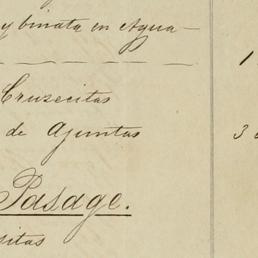 y binata en Agua-
1
Cruzecitas
de Ajuntas 3
Pasage.
sitas